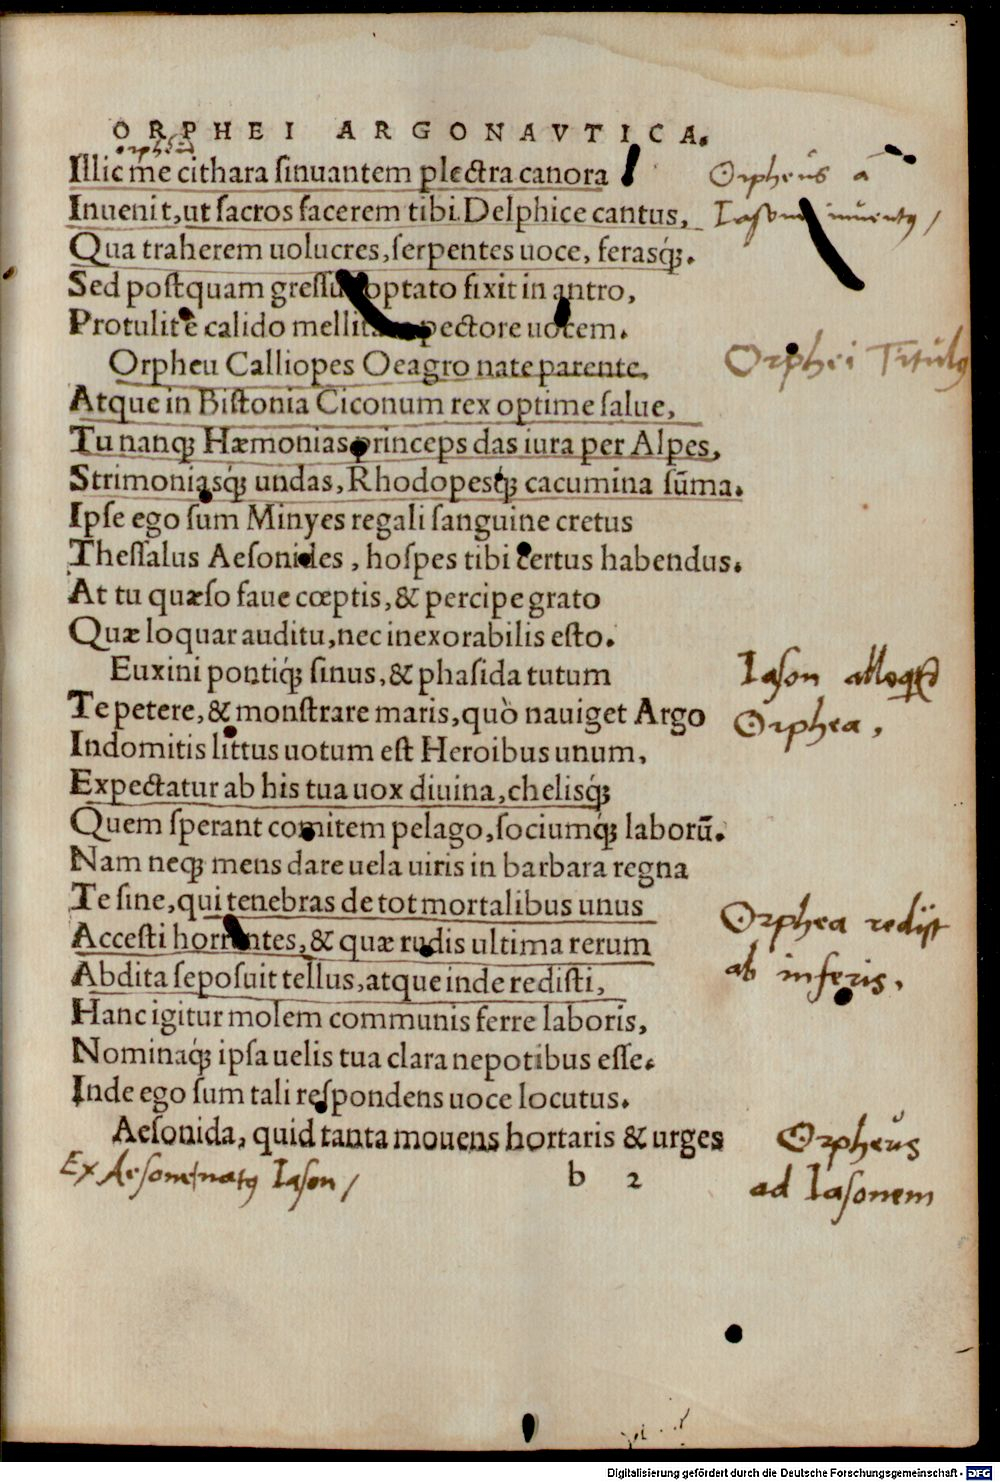 ORPHEI ARGONAVTICA.
orpheũ
Illic me cithara sinuantem plectra canora
Inuenit, ut sacros facerem tibi Delphice cantus,
Qua traherem uolucres, serpentes uoce, ferasq́;.
Sed postquam gressus optato fixit in antro,
Protulit è calido mellitam pectore uocem.
Orpheu Calliopes Oeagro nate parente,
Atque in Bistonia Ciconum rex optime salue,
Tu nanq; Hæmonias princeps das iura per Alpes,
Strimoniasq́; undas, Rhodopesq́; cacumina sũma.
Ipse ego sum Minyes regali sanguine cretus
Thessalus Aesonides, hospes tibi certus habendus.
At tu quæso faue cœptis, & percipe grato
Quæ loquar auditu, nec inexorabilis esto.
Euxini pontiq́; sinus, & phasida tutum
Te petere, & monstrare maris, quò nauiget Argo
Indomitis littus uotum est Heroibus unum,
Expectatur ab his tua uox diuina, chelisq́;
Quem sperant comitem pelago, sociumq́; laborũ.
Nam neq; mens dare uela uiris in barbara regna
Te sine, qui tenebras de tot mortalibus unus
Accesti horrentes, & quæ rudis ultima rerum
Abdita seposuit tellus, atque inde redisti,
Hanc igitur molem communis ferre laboris,
Nominaq́; ipsa uelis tua clara nepotibus esse.
Inde ego sum tali respondens uoce locutus.
Aesonida, quid tanta mouens hortaris & urges
b 2
Orpheus à
Iasone inuentus /
Orphei Titulus
Iason alloquitur
Orphea,
Orphea redijt
ab inferis.
Orpheus
ad Iasonem
Ex Aesone natus Iason /
Digitalisierung gefördert durch die Deutsche Forschungsgemeinschaft - DFG